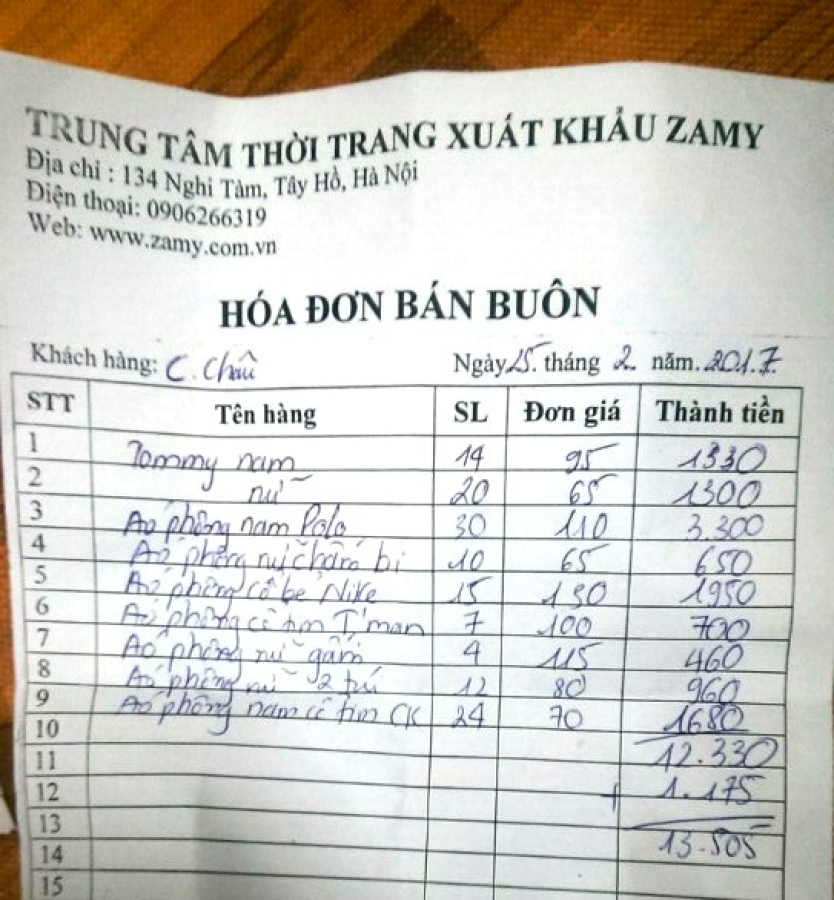 TRUNG TÂM THỜI TRANG XUẤT KHẨU ZAMY
Địa chỉ : 134 Nghi Tàm, Tây Hồ, Hà Nội
Điện thoại: 0906266319
Web: www.zamy.com.vn
HÓA ĐƠN BÁN BUÔN
Khách hàng: C. Châu Ngày 25. tháng 2. năm. 2017.
STT Tên hàng SL Đơn giá Thành tiền
1 Tommy nam 14 95 1330
2 nữ 20 65 1300
3 Áo phông nam Polo 30 110 3.300
4 Áo phông nữ chấm bi 10 65 650
5 Áo phông cổ bẻ Nike 15 130 1950
6 Áo phông cổ tim T'man 7 100 700
7 Áo phông nữ gấm 4 115 460
8 Áo phông nữ 2 túi 12 80 960
9 Áo phông nam cổ tim CK 24 70 1680
10
11 12.330
12 + 1.175
13
14 13.505
15